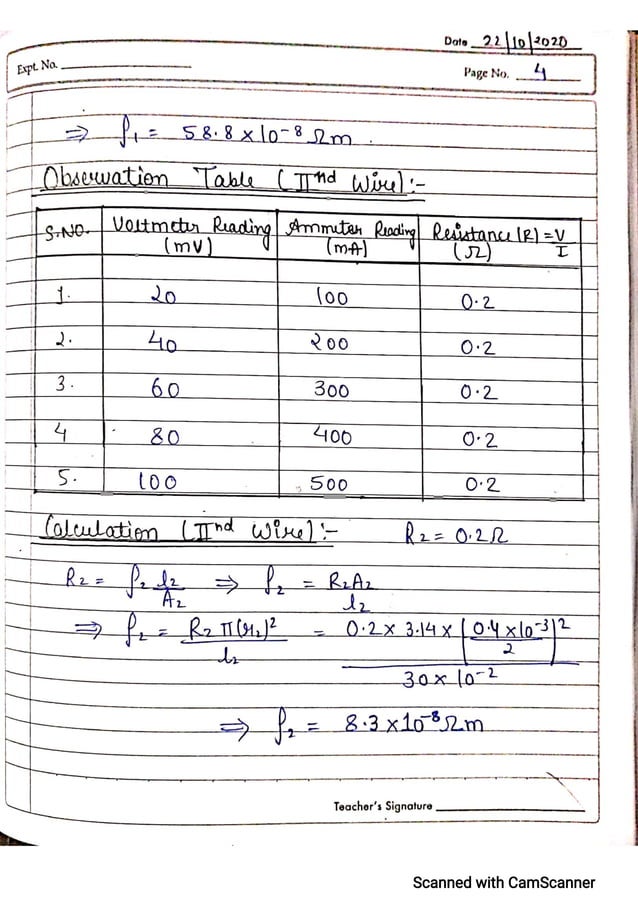 Date 22/10/2020
Expt. No.
Page No. 4
⇒ ρ₁ = 58.8 × 10⁻⁸ Ωm.
Observation Table (IInd Wire):-
S.NO. | Voltmeter Reading (mV) | Ammeter Reading (mA) | Resistance (R) = V/I (Ω)
1. | 20 | 100 | 0.2
2. | 40 | 200 | 0.2
3. | 60 | 300 | 0.2
4 | 80 | 400 | 0.2
5. | 100 | 500 | 0.2
Calculation (IInd Wire):- R₂ = 0.2Ω
R₂ = ρ₂ l₂/A₂ ⇒ ρ₂ = R₂A₂/l₂
⇒ ρ₂ = R₂ π(r₂)²/l₂ = 0.2 × 3.14 × (0.4 × 10⁻³/2)² / 30 × 10⁻²
⇒ ρ₂ = 8.3 × 10⁻⁸ Ωm
Teacher's Signature
Scanned with CamScanner